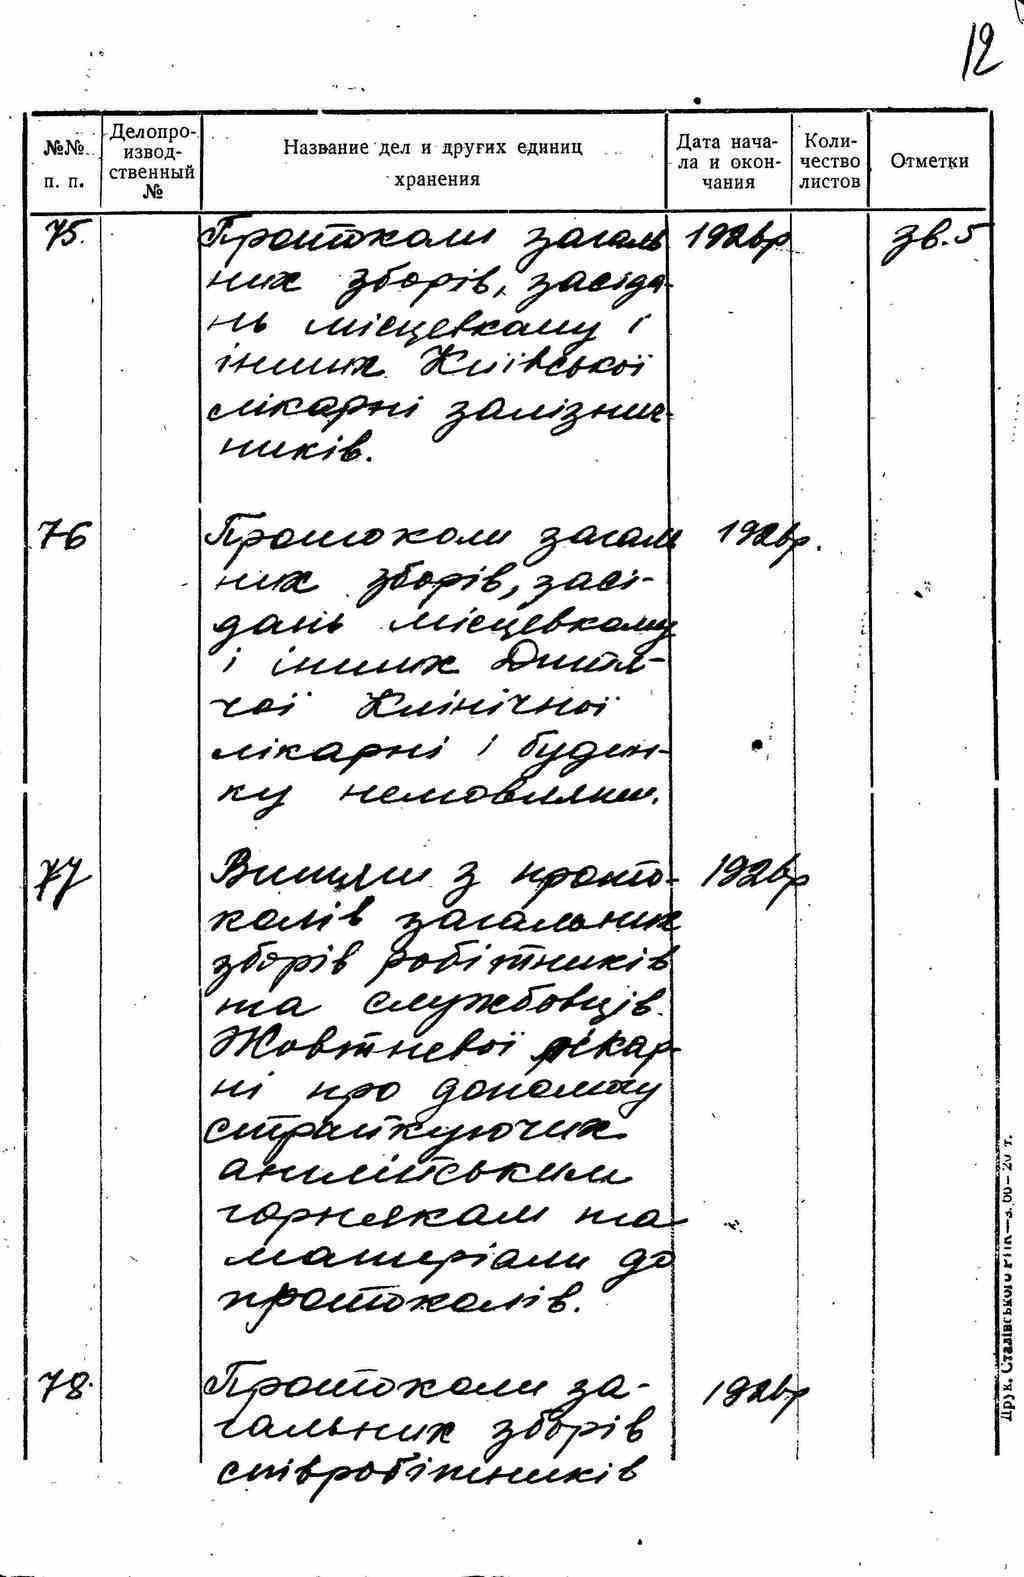 12
№№ п. п.
Делопро-
извод-
ственный
№
Название дел и других единиц
хранения
Дата нача-
ла и окон-
чания
Коли-
чество
листов
Отметки
75. Протоколи загаль 1926р зв. 5
них зборів, засіда-
нь місцевкому і
інших Київської
лікарні залізнич-
ників.
76 Протоколи загаль 1926р.
них зборів, засі-
дань місцевкому
і інших Дитя-
чої Клінічної
лікарні і будин-
ку немовляти.
77 Витяги з прото- 1926р
колів загальних
зборів робітників
та службовців
Жовтневої лікар-
ні про допомогу
страйкуючих
англійським
горнякам та
матеріали до
протоколів.
78. Протоколи за- 1926р
гальних зборів
співробітників
Друк. Сталінського РПК—з.